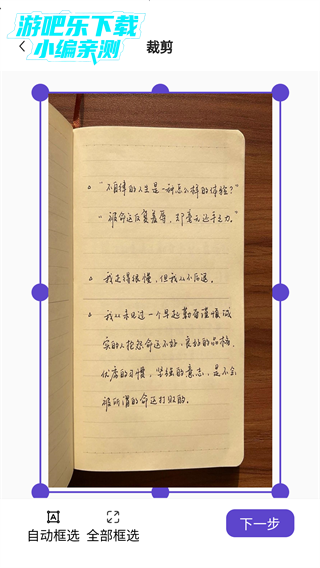 游吧乐下载
小编亲测
裁剪
。“不自律的人生是一种怎么样的体验？”
“被命运反复羞辱，却毫无还手之力。”
。我走得很慢，但我从不后退。
。我从未见过一个早起勤奋谨慎诚
实的人抱怨命运不好，良好的品格，
优秀的习惯，坚强的意志，是不会
被所谓的命运打败的。
自动框选 全部框选
下一步